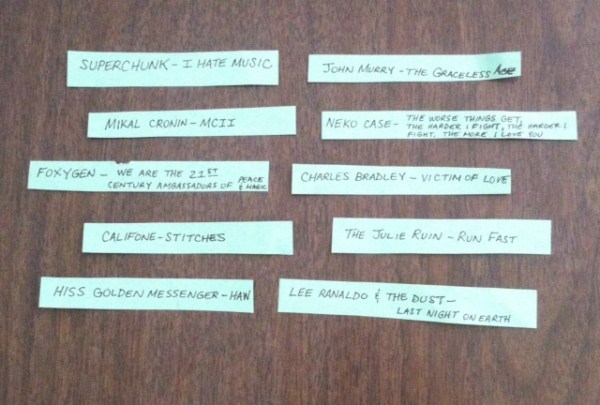 SUPERCHUNK - I HATE MUSIC
JOHN MURRY - THE GRACELESS AGE
MIKAL CRONIN - MCII
NEKO CASE - THE WORSE THINGS GET,
THE HARDER I FIGHT, THE HARDER I
FIGHT, THE MORE I LOVE YOU
FOXYGEN - WE ARE THE 21ST
CENTURY AMBASSADORS OF PEACE
& MAGIC
CHARLES BRADLEY - VICTIM OF LOVE
CALIFONE - STITCHES
THE JULIE RUIN - RUN FAST
HISS GOLDEN MESSENGER - HAW
LEE RANALDO & THE DUST -
LAST NIGHT ON EARTH